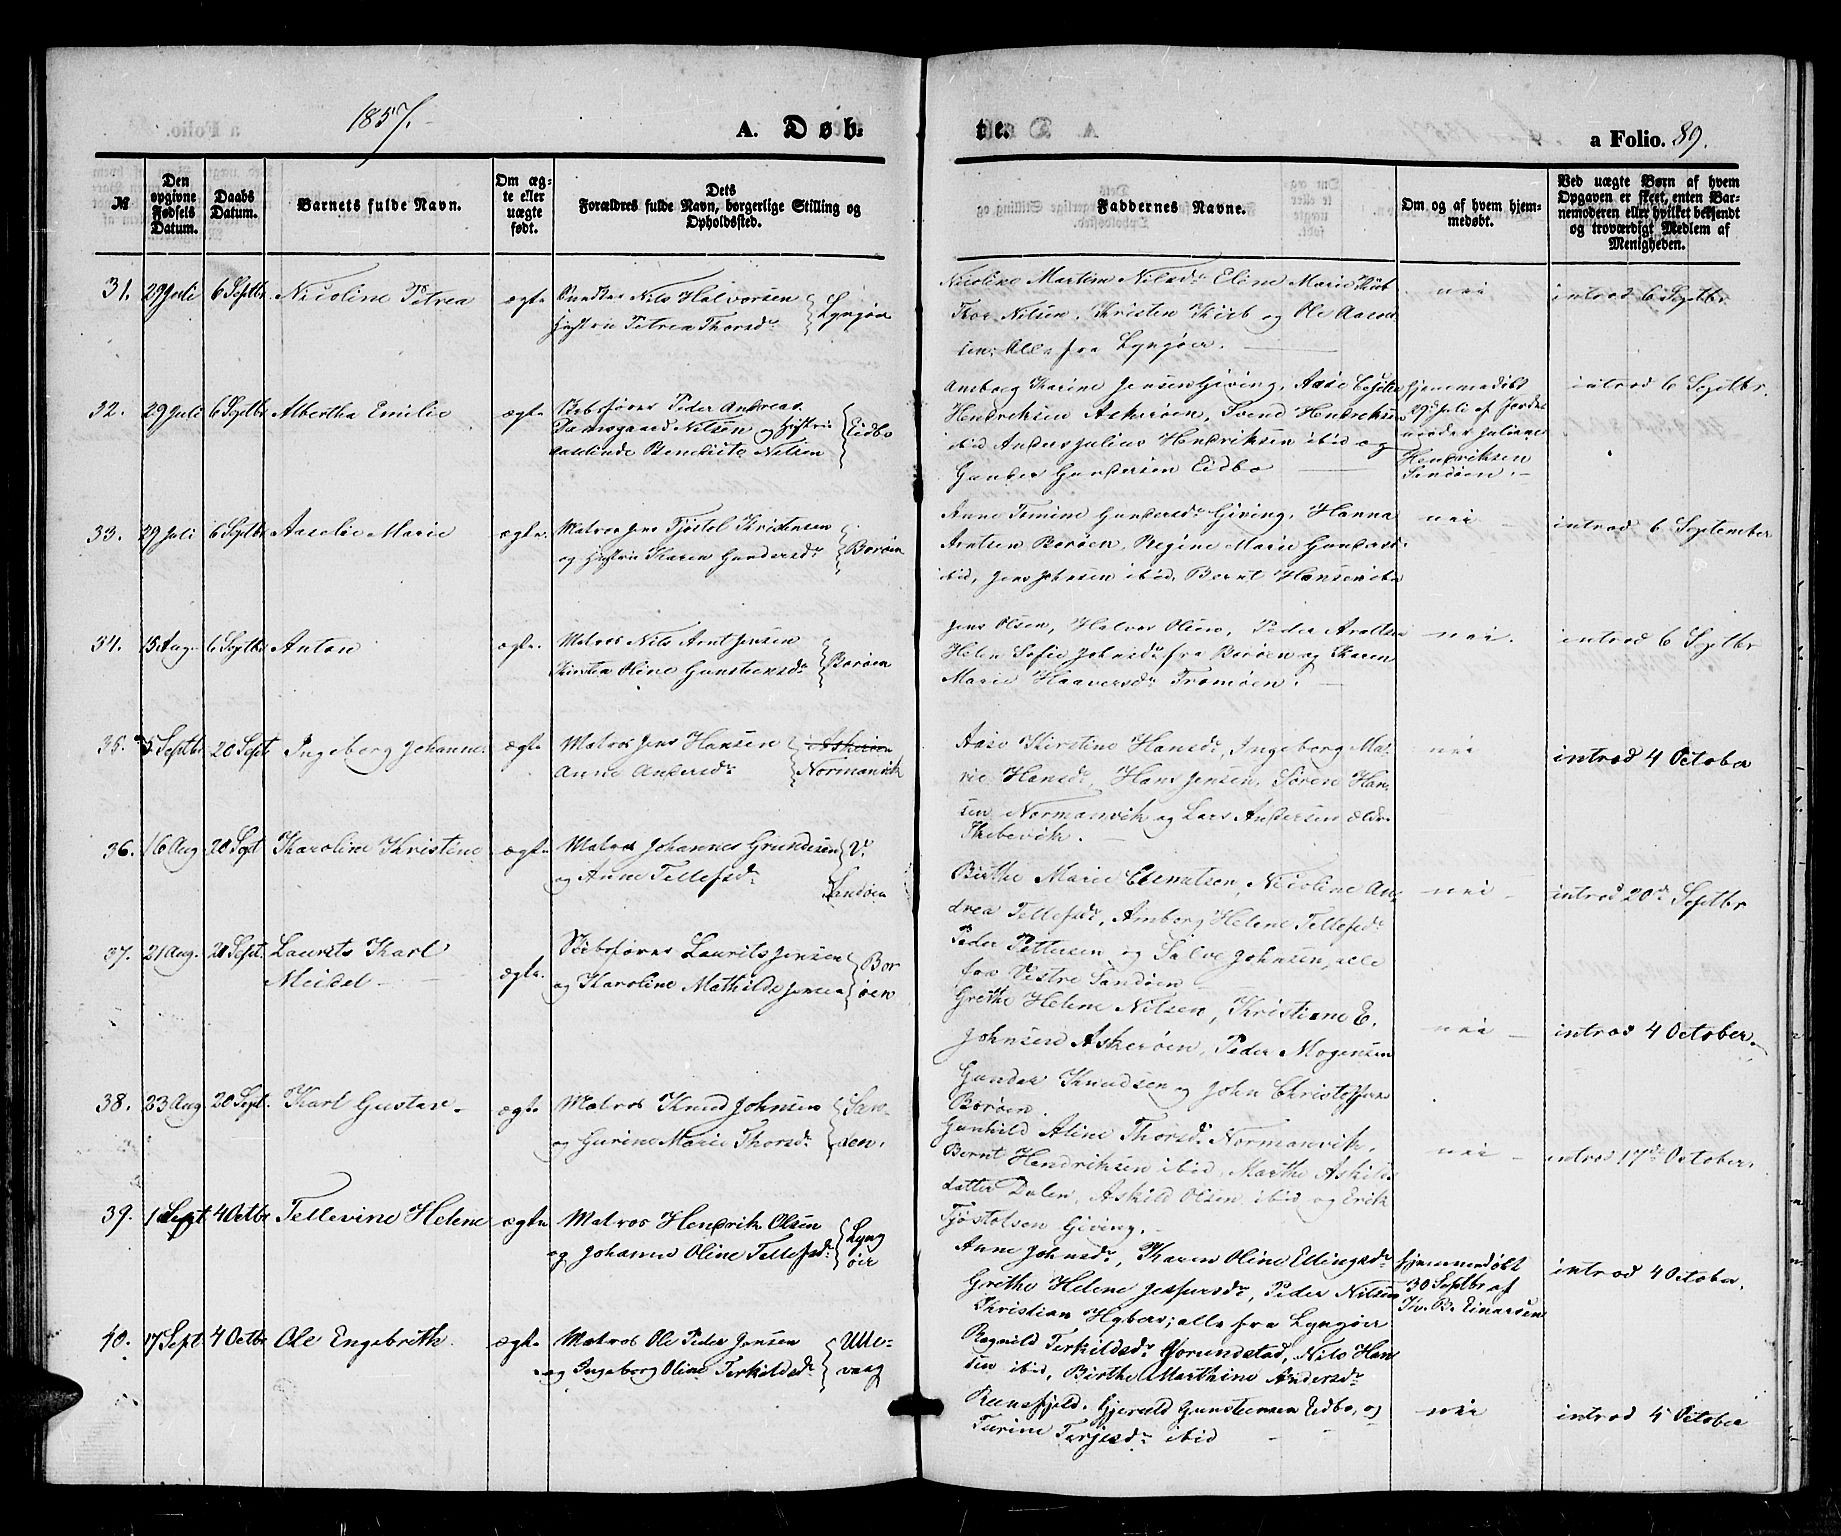 1857.
A. Døb=
te.
a Folio. 89.
№
Den opgivne Fødsels Datum.
Daabs Datum.
Barnets fulde Navn.
Om ægte eller uægte født.
Dets Forældres fulde Navn, borgerlige Stilling og Opholdssted.
Faddernes Navne.
Om og af hvem hjemmedøbt.
Ved uægte Børn af hvem Opgaven er skeet, enten Barnemoderen eller hvilket bekjendt og troværdigt Medlem af Menigheden.
31. 29 Juli 6 Septbr Nicoline Petrea ægte Nils Halvorsen
Hustru Petrea Thorsdr Lyngøer
Nicoline Martine Nilsdr Eline Marie
Thor Nilsen, Kristen og Ole
sen. Alle fra Lyngøer.
nei
introd 6 Septbr.
32. 29 Juli 6 Septbr Albertha Emilie ægte Peder Andreas
Damsgaard Nilsen og Hustru
Benedicte Nilsen Eidbo
Amborg Karine Jensen Giving, Aase
Hendriksen Askerøen, Svend Hendriksen
ibid Anders Julius Hendriksen ibid og
Gunder Gundersen Eidbo
hjemmedøbt
29de Juli af Jorde
moder Juliane
Hendriksen
Sandøen.
introd 6 Septbr.
33. 29 Juli 6 Septbr Aaselie Marie ægte. Matros Jens Tjøstol Kristensen
og Hustru Karen Gundersdr Borøen
Anne Tomine Gundersdr Giving, Hanna
Arntsen Borøen, Regine Marie Gundersd
ibid, Jens Johnsen ibid, Bernt Hansen ibid
nei
introd 6 September
34. 15 Aug. 6 Septbr Anton ægte. Matros Nils Arnt Jensen
Kirstea Oline Gunsteensdr Borøen
Jens Olsen, Halvor Olsen, Peder
Helene Sofie Johnsdr fra Borøen og Karen
Marie Haaversdr Tromøen.
nei.
introd 6 Septbr
35. 5 Septbr 20 Sept Ingeborg Johanne. ægte Matros Jens Hansen Askerøen
Anne Andersdr Normanvik
Aase Kirstine Hansdr, Ingeborg Ma-
rie Hansdr, Hans Jensen, Søren Han-
sen Normanvik og Lars Andersen ældr
Skibevik.
nei
introd 4 October
36. 16 Aug 20 Sept Karoline Kristine ægte Matros Johannes Gundersen V.
og Anne Tellefsdr Sandøen
Birthe Marie, Nicoline An-
drea Tellefsdr, Amborg Helene Tellefsdr
Peder Pettersen og Salve Johnsen, alle
fra Vestre Sandøen
nei
introd 20de Septbr
37. 21 Aug. 20 Sept. Laurits Karl
Meidel ægte. Skibsfører Laurits Jensen
og Karoline Mathilde Jensen Bor
øen
Grethe Helene Nilsen, Kristiane E.
Johnsen Askerøen, Peder Mogensen
Gunder Knudsen og John Christophersen
Borøen.
nei
introd 4 October.
38. 23 Aug 20 Sept. Karl Gustav. ægte Matros Knud Johnsen San-
og Gurine Marie Thorsdr. øen.
Gunhild Aline Thorsdr Normanvik,
Bernt Hendriksen ibid, Marthe Askilds
datter Dalen, Askild Olsen ibid og Erik
Tjøstolsen Giving.
nei
introd 17de October.
39. 1 Sept 4 Octbr Tellevine Helene ægte Matros Hendrik Olsen
og Johanne Oline Tellefsdr. Lyng
øer
Anne Johnsdr, Karen Oline Ellingsdr
Grethe Helene Jespersdr, Peder Nilsen
Christian Hybers; alle fra Lyngøer
hjemmedøbt
30 Septbr af
Einarsen
introd 4 October.
40. 17 Sept 4 Octbr Ole Engebreth. ægte Matros Ole Peder Jensen
og Ingeborg Oline Terkildsdr. Utte-
vaag
Ragnild Terkildsdr Gjerundstad, Nils Han
sen ibid, Birthe Marthine Andersdr
Reinsfjeld. Gjeruld Gunsteensen Eidbo, og
Turine Terjesdr ibid
nei
introd 4 October